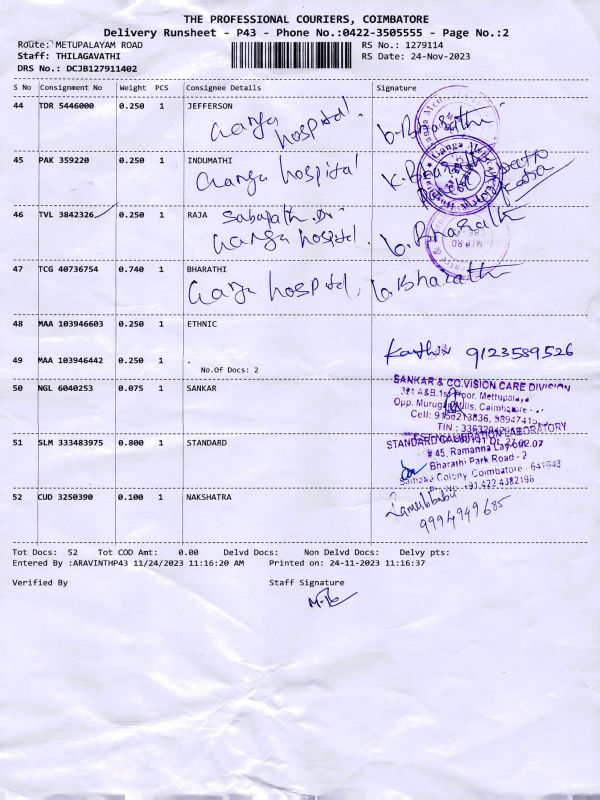 THE PROFESSIONAL COURIERS, COIMBATORE
Delivery Runsheet - P43 - Phone No.:0422-3505555 - Page No.:2
Route: METUPALAYAM ROAD RS No.: 1279114
Staff: THILAGAVATHI RS Date: 24-Nov-2023
DRS No.: DCJB127911402
S No Consignment No Weight PCS Consignee Details Signature
44 TDR 5446000 0.250 1 JEFFERSON
Ganga hospital. b.Bharathi
45 PAK 359220 0.250 1 INDUMATHI
Ganga hospital
46 TVL 3842326 0.250 1 RAJA Sabapath. Dr
Ganga hospital. b.Bharathi
47 TCG 40736754 0.740 1 BHARATHI
Ganga hospital. b.Bharathi
48 MAA 103946603 0.250 1 ETHNIC
Karthik 9123589526
49 MAA 103946442 0.250 1 .
No.Of Docs: 2
50 NGL 6040253 0.075 1 SANKAR
SANKAR & CO.VISION CARE DIVISION
321 A&B,1st Floor, Mettupalayam
Opp. Murugan Mills, Coimbatore
Cell:
TIN :
51 SLM 333483975 0.800 1 STANDARD
STANDARD CALIBRATION LABORATORY
# 45, Ramanna Layout
Bharathi Park Road - 2
Saibaba Colony, Coimbatore - 641043
+91.422.4382198
52 CUD 3250390 0.100 1 NAKSHATRA
9994949685
Tot Docs: 52 Tot COD Amt: 0.00 Delvd Docs: Non Delvd Docs: Delvy pts:
Entered By :ARAVINTHP43 11/24/2023 11:16:20 AM Printed on: 24-11-2023 11:16:37
Verified By Staff Signature